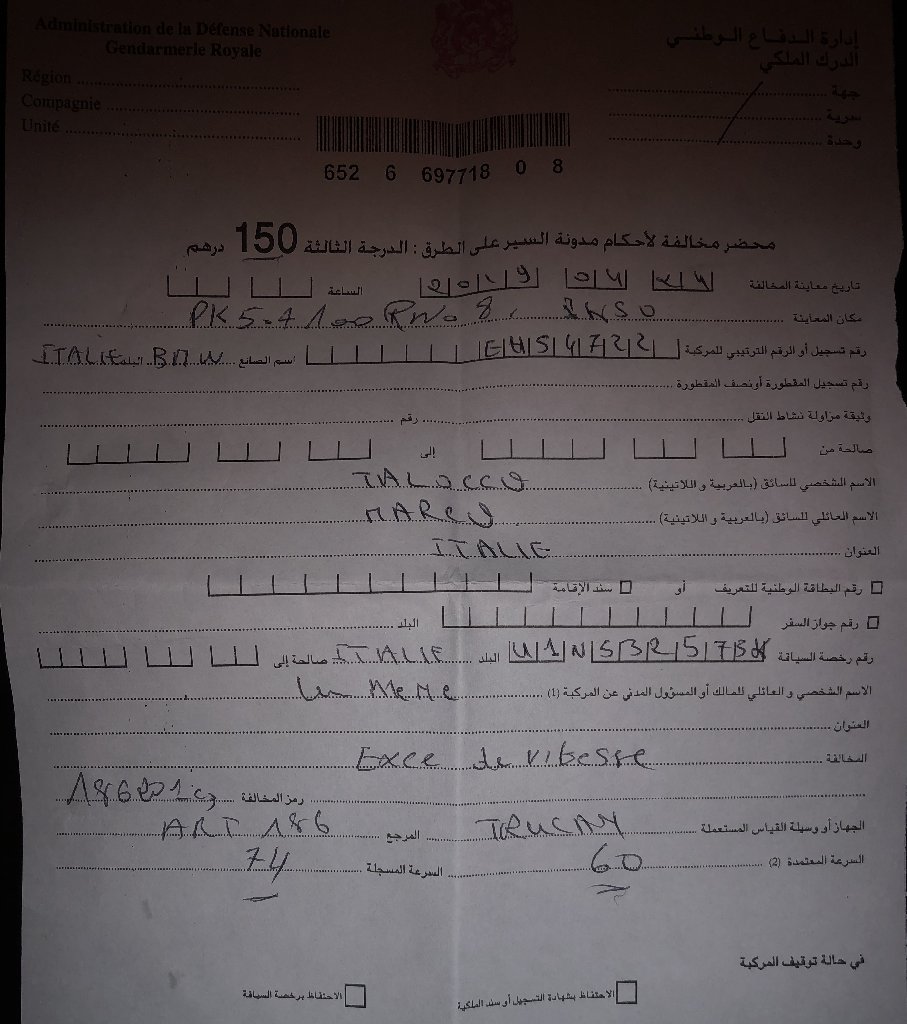 Administration de la Défense Nationale
Gendarmerie Royale
Région
Compagnie
Unité
إدارة الدفاع الوطني
الدرك الملكي
جهة
سرية
وحدة
652 6 697718 0 8
محضر مخالفة لأحكام مدونة السير على الطرق : الدرجة الثالثة 150 درهم
تاريخ معاينة المخالفة 2019 04 الساعة
مكان المعاينة PK 5.4 100 RNo 8
رقم تسجيل أو الرقم الترتيبي للمركبة EH54722 اسم الصانع BMW البلد ITALIE
رقم تسجيل المقطورة أو نصف المقطورة
وثيقة مزاولة نشاط النقل رقم
صالحة من إلى
الاسم الشخصي للسائق (بالعربية و اللاتينية) TALOCCO
الاسم العائلي للسائق (بالعربية و اللاتينية) MARCO
العنوان ITALIE
رقم البطاقة الوطنية للتعريف أو سند الإقامة
رقم جواز السفر البلد
رقم رخصة السياقة البلد ITALIE صالحة إلى
الاسم الشخصي و العائلي للمالك أو المسؤول المدني عن المركبة (1) Meme
العنوان
المخالفة Exce de vitesse
رمز المخالفة
الجهاز أو وسيلة القياس المستعملة TRUCAM المرجع ART 186
السرعة المعتمدة (2) 60 السرعة المسجلة 74
في حالة توقيف المركبة
الاحتفاظ بشهادة التسجيل أو سند الملكية الاحتفاظ برخصة السياقة